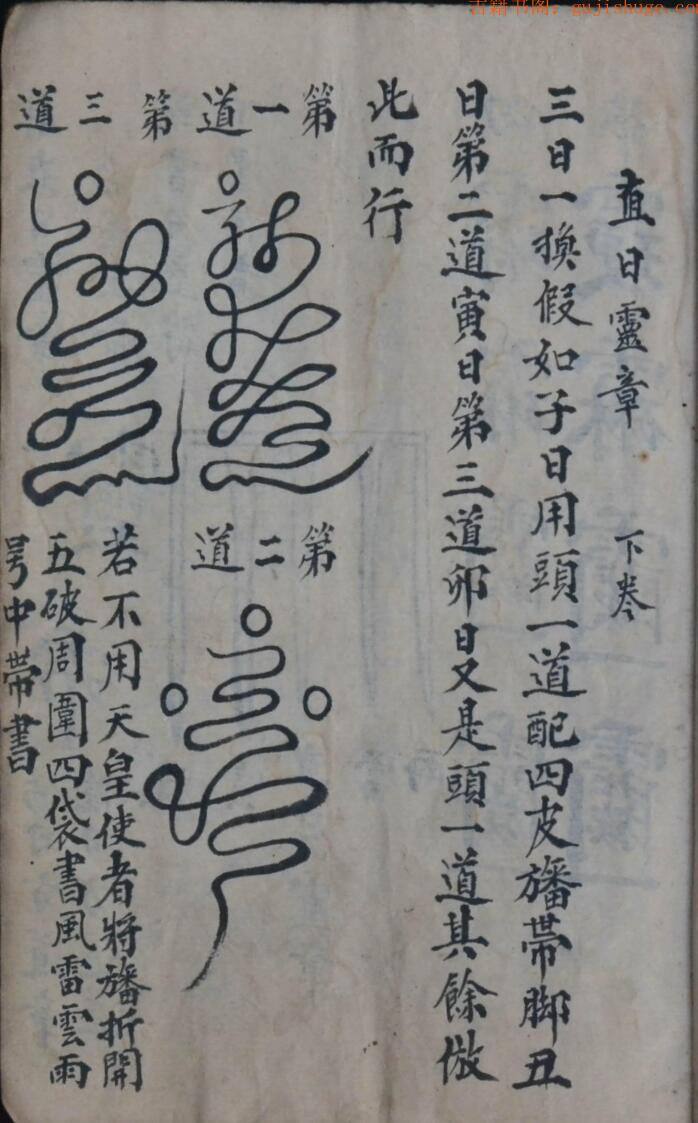 古籍书阁：gujishuge.com
直日靈章　下卷
三日一換假如子日用頭一道配四皮旛帶脚丑
日第二道寅日第三道卯日又是頭一道其餘倣
此而行
第一道
第三道
第二道
若不用天皇使者將旛折開
五破周圍四袋書風雷雲雨
号中帶書